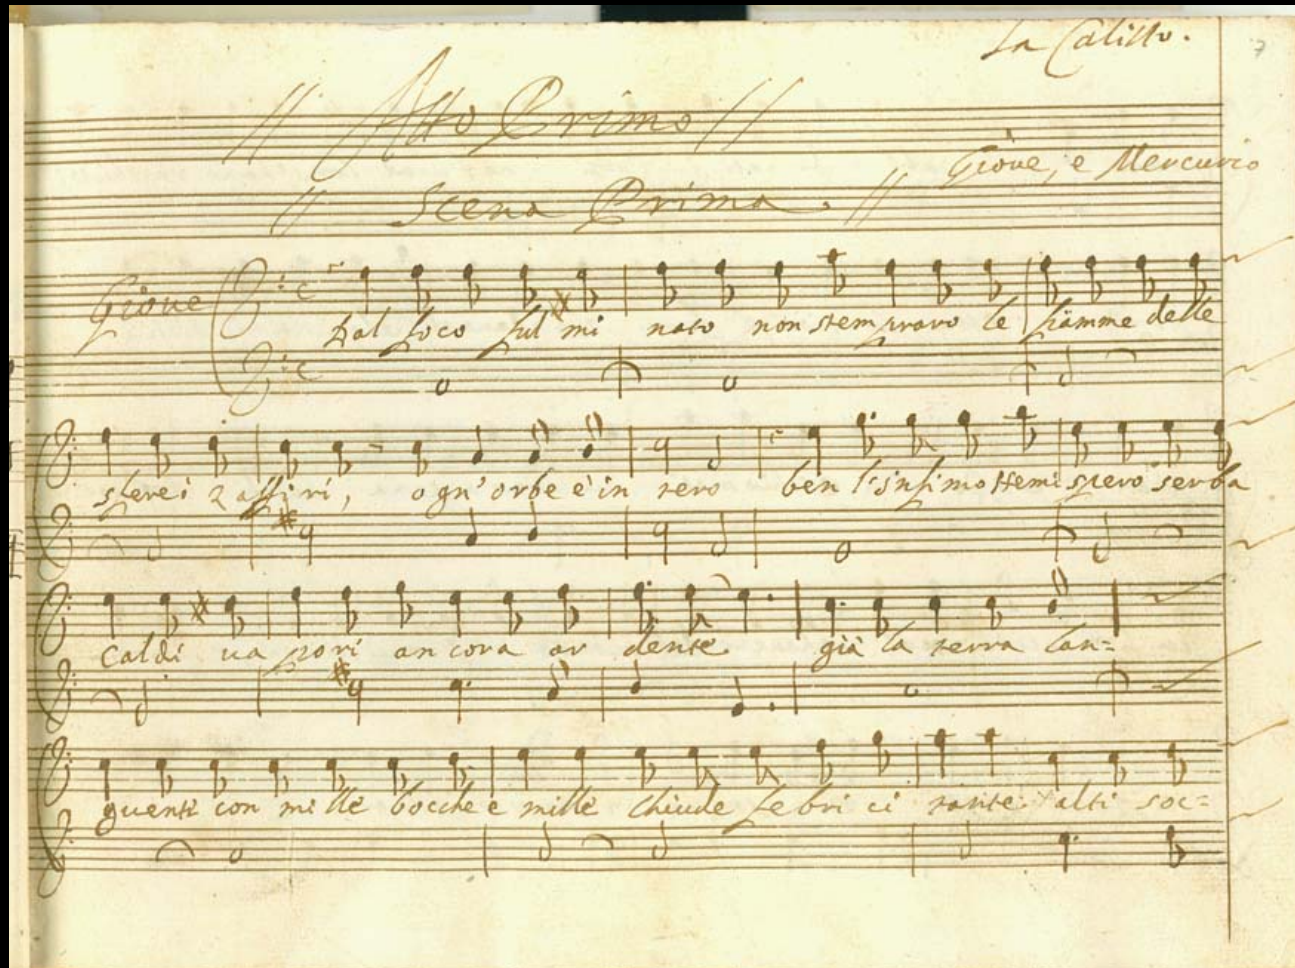 La Calisto.
7
// Atto Primo //
Giove, e Mercurio
// Scena Prima. //
Giove
Dal foco ful mi nato non stempravo le fiamme delle
sferei zaffiri, ogn'orbe è in tero ben l'infimo Hemi sfero serba
caldi va pori ancora ar dente già la terra lan=
guente con mille bocche e mille chiude febri ci tante alti soc=